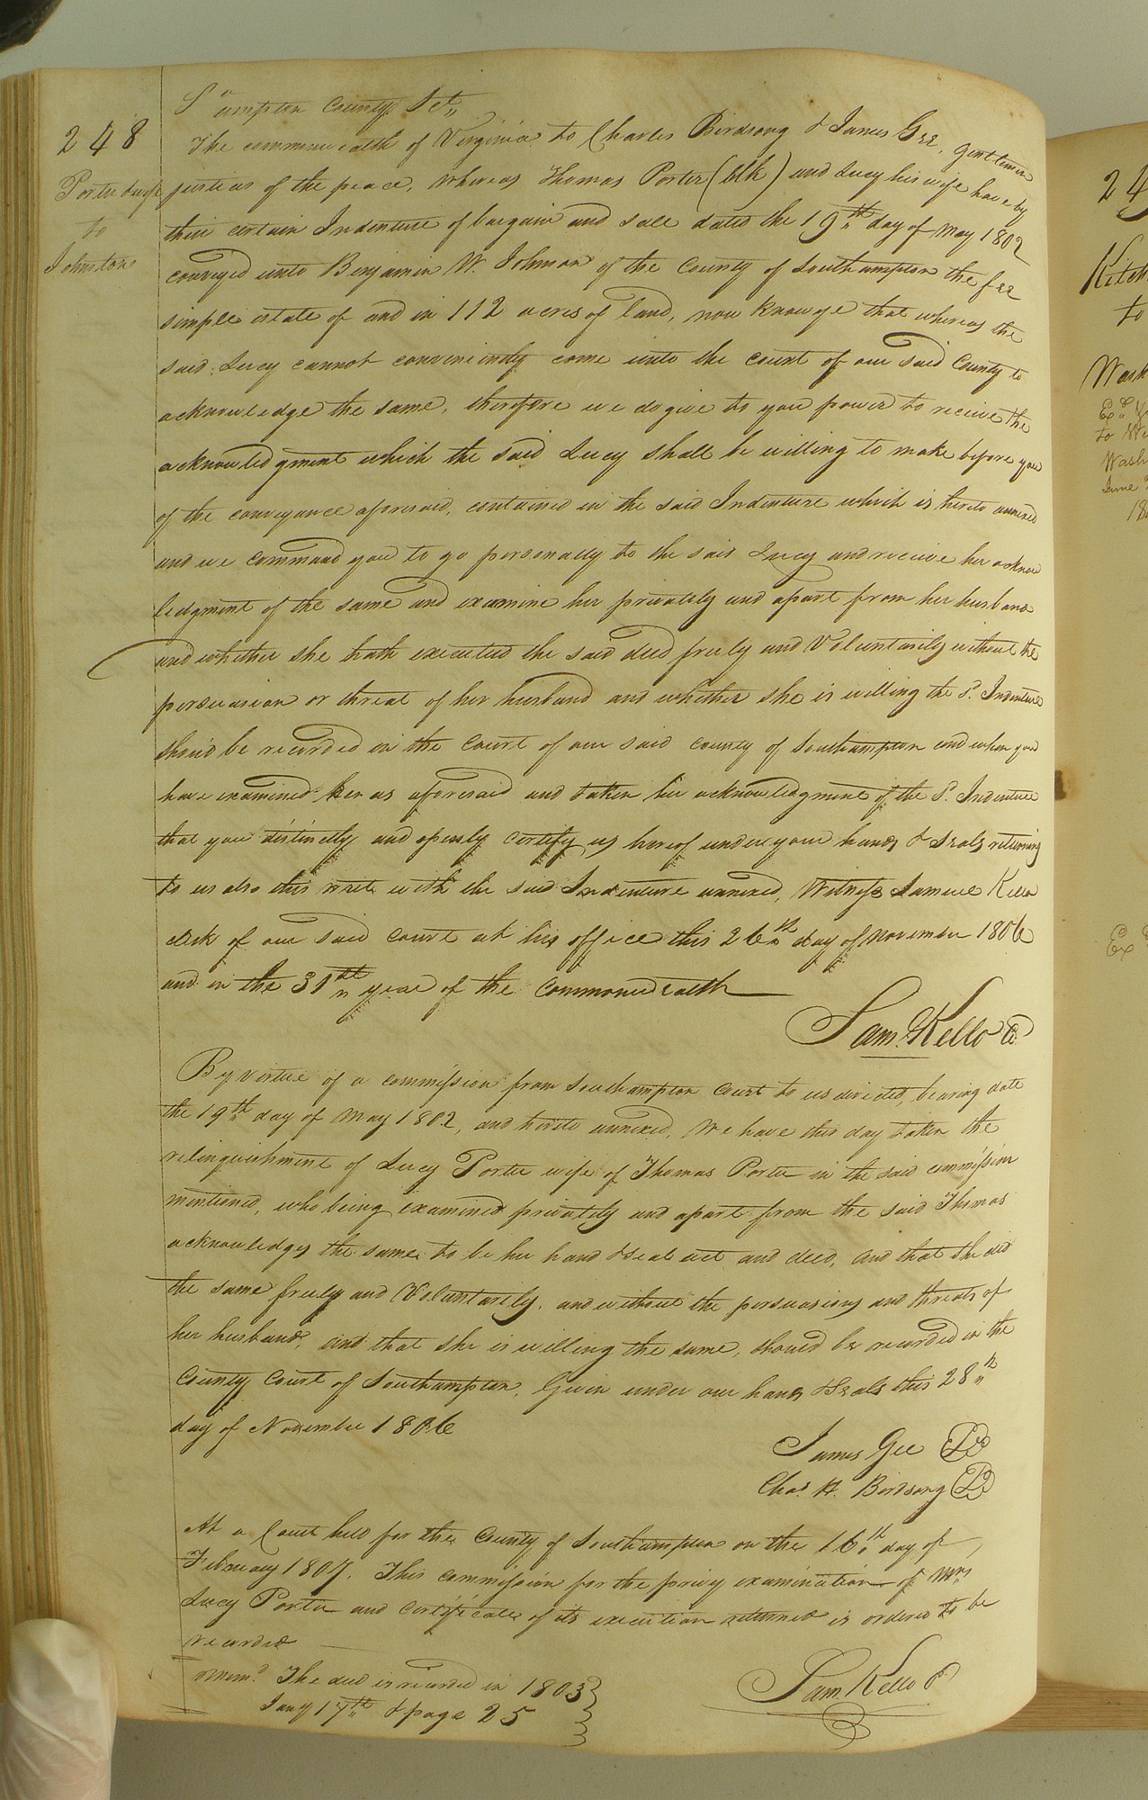 248
Porter & wife
to
Johnston
S°ampton County Sct,,
The commonwealth of Virginia to Charles Birdsong & James Gee, gentlemen
justices of the peace, Whereas Thomas Porter (blk) and Lucy his wife have by
their certain Indenture of bargain and sale dated the 19th day of May 1802
conveyed unto Benjamin W. Johnson of the County of Southampton the fee
simple estate of and in 112 acres of land, now know ye that whereas the
said Lucy cannot conveniently come unto the court of our said County to
acknowledge the same, therefore we do give to you power to receive the
acknowledgment which the said Lucy shall be willing to make before you
of the conveyance aforesaid, contained in the said Indenture which is hereto annexed
and we command you to go personally to the said Lucy and receive her acknow
ledgment of the same and examine her privately and apart from her husband
and whether she hath executed the said deed freely and Voluntarily without the
persuasion or threat of her husband and whether she is willing the sd. Indenture
should be recorded in the court of our said county of Southampton and when you
have examined her as aforesaid and taken her acknowledgment of the sd. Indenture
that you distinctly and openly certify us hereof under your hands & Seals returning
to us also this writ with the said Indenture annexed, Witness Samuel Kello
clerk of our said court at his office this 26th day of November 1806
and in the 31st year of the Commonwealth
Sam. Kello Cl
By virtue of a commission from Southampton Court to us directed, bearing date
the 19th day of May 1802, and hereto annexed, We have this day taken the
relinquishment of Lucy Porter wife of Thomas Porter in the said commission
mentioned, who being examined privately and apart from the said Thomas
acknowledges the same to be her hand & Seal act and deed, and that she did
the same freely and Voluntarily, and without the persuasions and threats of
her husband, and that she is willing the same, should be recorded in the
County Court of Southampton. Given under our hands & Seals this 28th
day of November 1806
James Gee LS
Chas. H. Birdsong LS
At a Court held for the County of Southampton on the 16th day of
February 1807. This commission for the privy examination of Mrs
Lucy Porter and certificate of its execution returned is ordered to be
recorded
Memd. The deed is recorded in 1803
Jany 17th & page 25
Sam. Kello Cl
24
Kitch
to
Wash
to
Wash
June
18
Ex